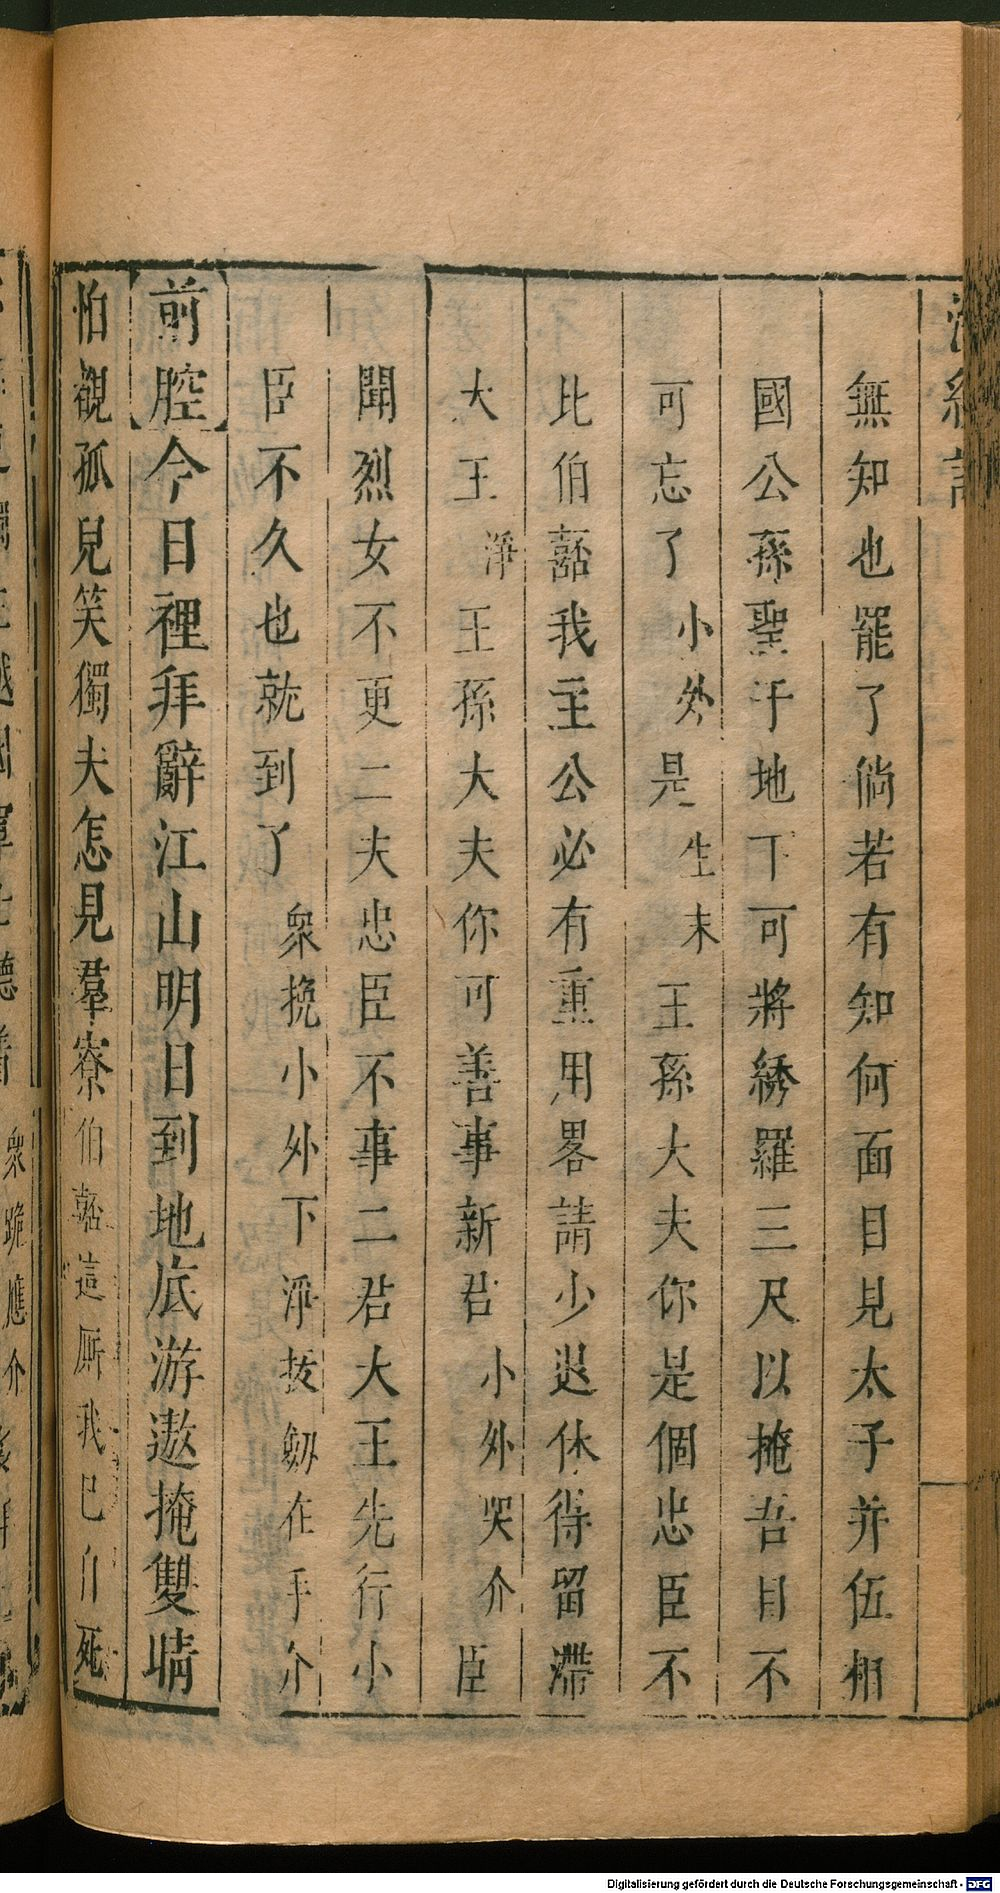 無知也罷了倘若有知何面目見太子并伍相
國公孫聖于地下可將綉羅三尺以掩吾目不
可忘了小外是生末王孫大夫你是個忠臣不
比伯嚭我主公必有重用畧請少退休得留滯
大王淨王孫大夫你可善事新君小外哭介臣
聞烈女不更二夫忠臣不事二君大王先行小
臣不久也就到了衆挽小外下淨拔劒在手介
前腔今日裡拜辭江山明日到地底游遨掩雙睛
怕覩孤兒笑獨夫怎見羣寮伯嚭這厮我已自死
Digitalisierung gefördert durch die Deutsche Forschungsgemeinschaft - DFG